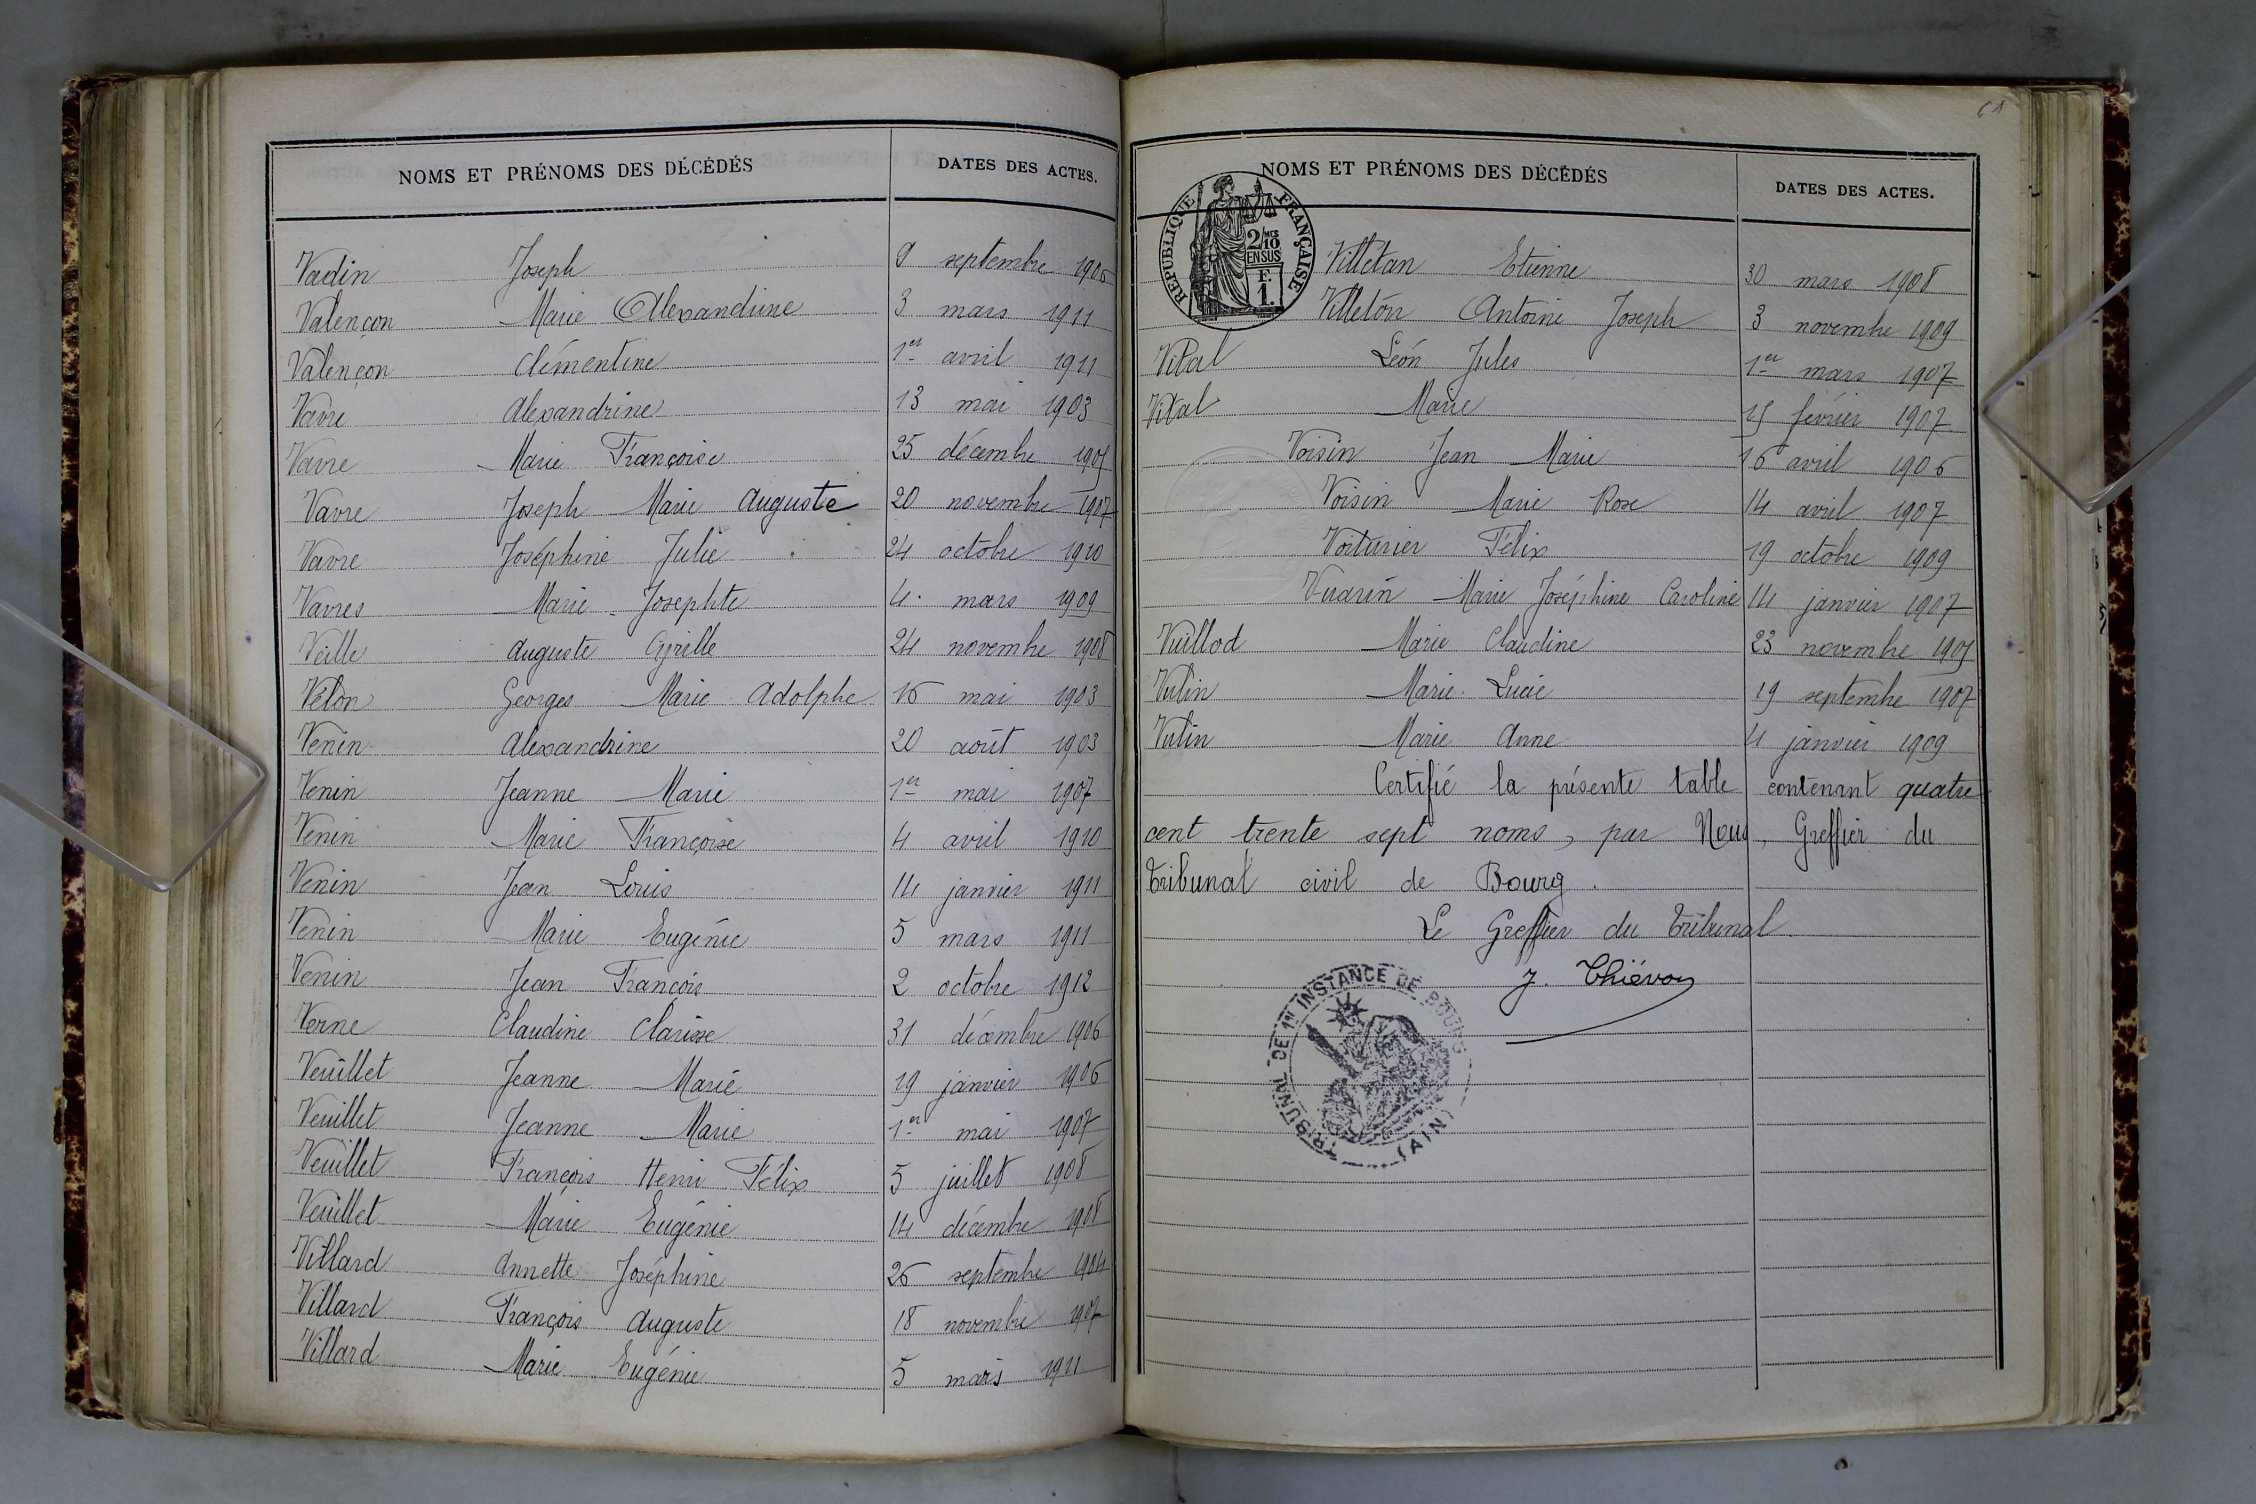 NOMS ET PRÉNOMS DES DÉCÉDÉS DATES DES ACTES.
Vadin Joseph 9 septembre 1906
Valençon Marie Alexandrine 3 mars 1911
Valençon Clémentine 1er avril 1911
Vavre Alexandrine 13 mai 1903
Vavre Marie Françoise 25 décembre 1905
Vavre Joseph Marie Auguste 20 novembre 1907
Vavre Joséphine Julie 24 octobre 1910
Vavres Marie Josephte 4 mars 1909
Veille Auguste Cyrille 24 novembre 1908
Velon Georges Marie Adolphe 16 mai 1903
Venin Alexandrine 20 août 1903
Venin Jeanne Marie 1er mai 1907
Venin Marie Françoise 4 avril 1910
Venin Jean Louis 14 janvier 1911
Venin Marie Eugénie 5 mars 1911
Venin Jean François 2 octobre 1912
Verne Claudine Clarisse 31 décembre 1906
Veuillet Jeanne Marie 19 janvier 1906
Veuillet Jeanne Marie 1er mai 1907
Veuillet François Henri Félix 5 juillet 1908
Veuillet Marie Eugénie 14 décembre 1908
Villard Annette Joséphine 26 septembre 1904
Villard François Auguste 18 novembre 1907
Villard Marie Eugénie 5 mars 1911
NOMS ET PRÉNOMS DES DÉCÉDÉS DATES DES ACTES.
RÉPUBLIQUE FRANÇAISE
2/10 MES
EN SUS
F.
1.
Villetan Etienne 30 mars 1908
Villeton Antoine Joseph 3 novembre 1909
Vital Léon Jules 1er mars 1907
Vital Marie 15 février 1907
Voisin Jean Marie 16 avril 1906
Voisin Marie Rose 14 avril 1907
Voiturier Félix 19 octobre 1909
Vuarin Marie Joséphine Caroline 14 janvier 1907
Vuillod Marie Claudine 23 novembre 1905
Vulin Marie Lucie 19 septembre 1907
Vulin Marie Anne 4 janvier 1909
Certifié la présente table contenant quatre
cent trente sept noms, par Nous, Greffier du
Tribunal civil de Bourg.
Le Greffier du Tribunal
J. Thiévon
TRIBUNAL DE 1re INSTANCE DE BOURG
(AIN)